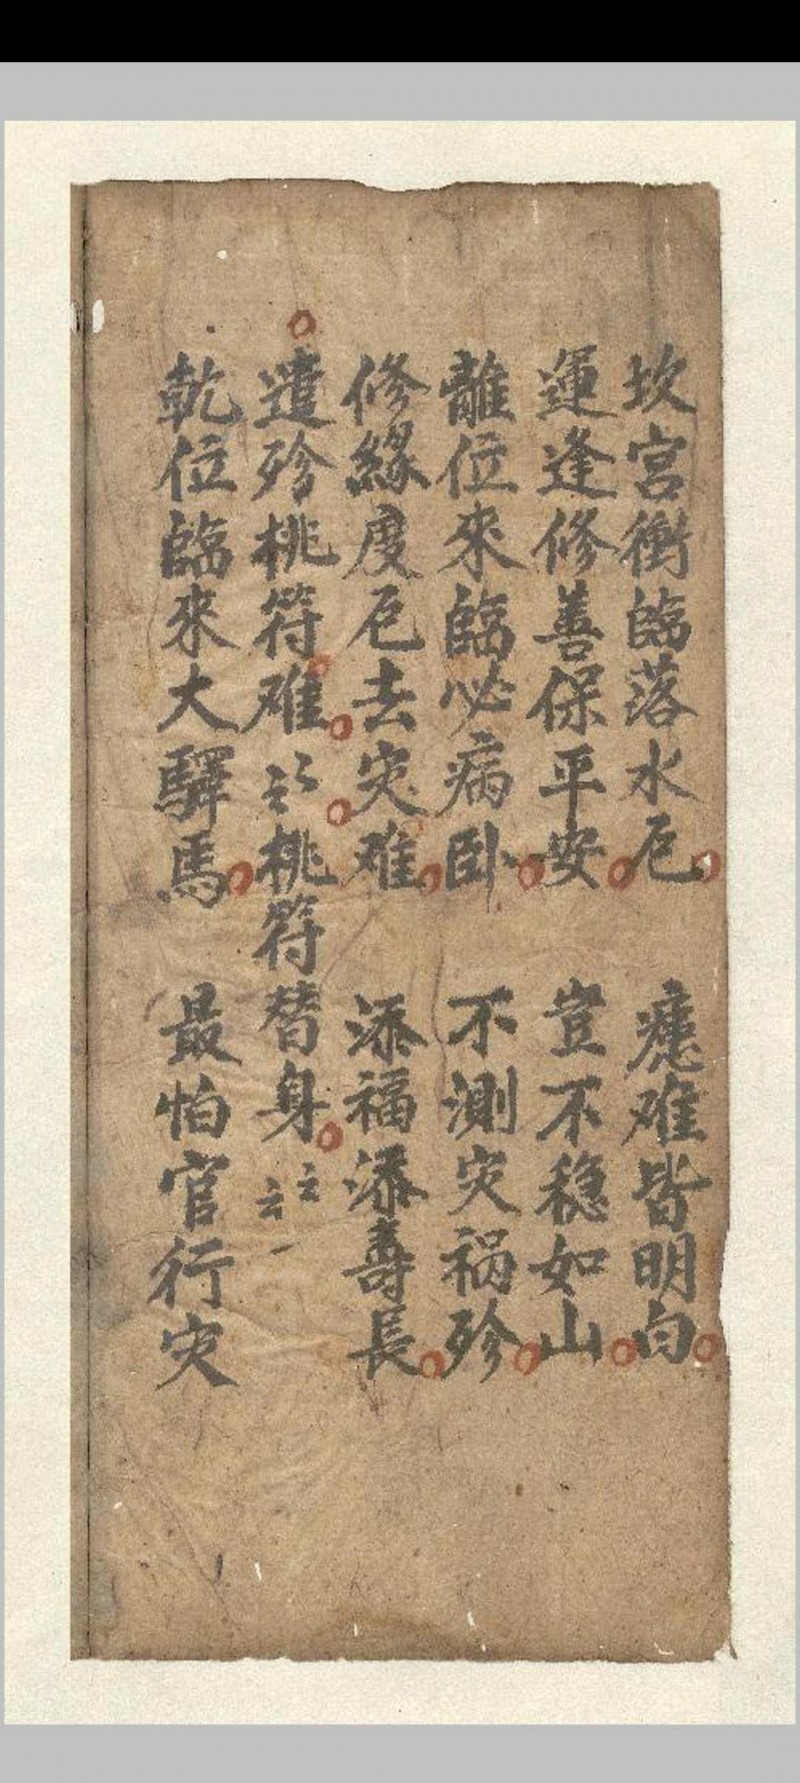 坎宮衝臨落水厄 難皆明白
運逢修善保平安 豈不穩如山
離位來臨必病卧 不測灾禍殄
修緣度厄去灾难 添福添壽長
遣殄桃符难 桃符替身 云云
乾位臨來大驛馬 最怕官行灾